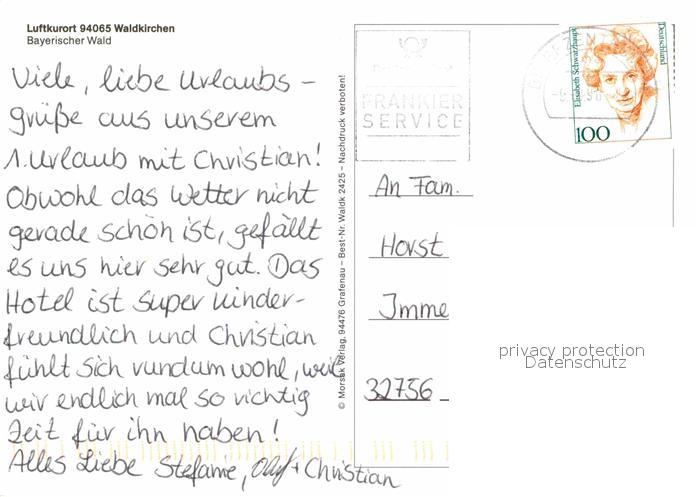 Luftkurort 94065 Waldkirchen
Bayerischer Wald
Viele, liebe Urlaubs-
grüße aus unserem
1. Urlaub mit Christian!
Obwohl das Wetter nicht
gerade schön ist, gefällt
es uns hier sehr gut. Das
Hotel ist super kinder-
freundlich und Christian
fühlt sich rundum wohl, weil
wir endlich mal so richtig
Zeit für ihn haben!
Alles Liebe Stefanie, Olaf + Christian
© Morsak Verlag, 94476 Grafenau – Best-Nr. Waldk 2425 – Nachdruck verboten!
FRANKIER
SERVICE
Elisabeth Schwarzhaupt
Deutschland
100
An Fam.
Horst
Imme
32756
privacy protection
Datenschutz